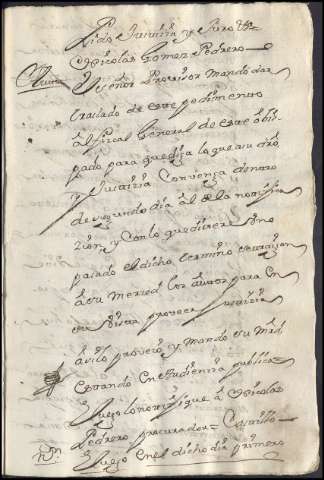 Pido Justicia y Juro &a
Nicolas Gomez Pedrero
Auto El Señor Provisor Mando dar
traslado de este pedimento
al fiscal General de este obis-
pado para que diga lo que a su dro
y Justicia Convenga dentro
de segundo dia al de la notifica
zion y Con lo que dixere o no
pasado el dicho termino se traigan
a su merced los autos para En
su Vista proveer Justicia
asi lo proveyo y mando su mrd
estando En Audiencia publica
Luego lo notifique a Nicolas
Pedrero procurador = Castillo
Non Luego en el dicho dia primero